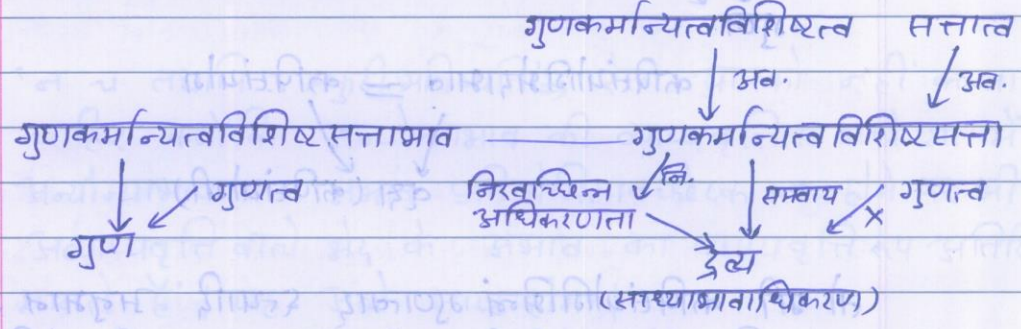 गुणकर्मान्यत्वविशिष्टत्व सत्तात्व
अव. अव.
गुणकर्मान्यत्वविशिष्टसत्ताभाव गुणकर्मान्यत्वविशिष्टसत्ता
गुणत्व निरवच्छिन्न नि. समवाय गुणत्व
अधिकरणता
गुण द्रव्य
(साध्याभावाधिकरण)